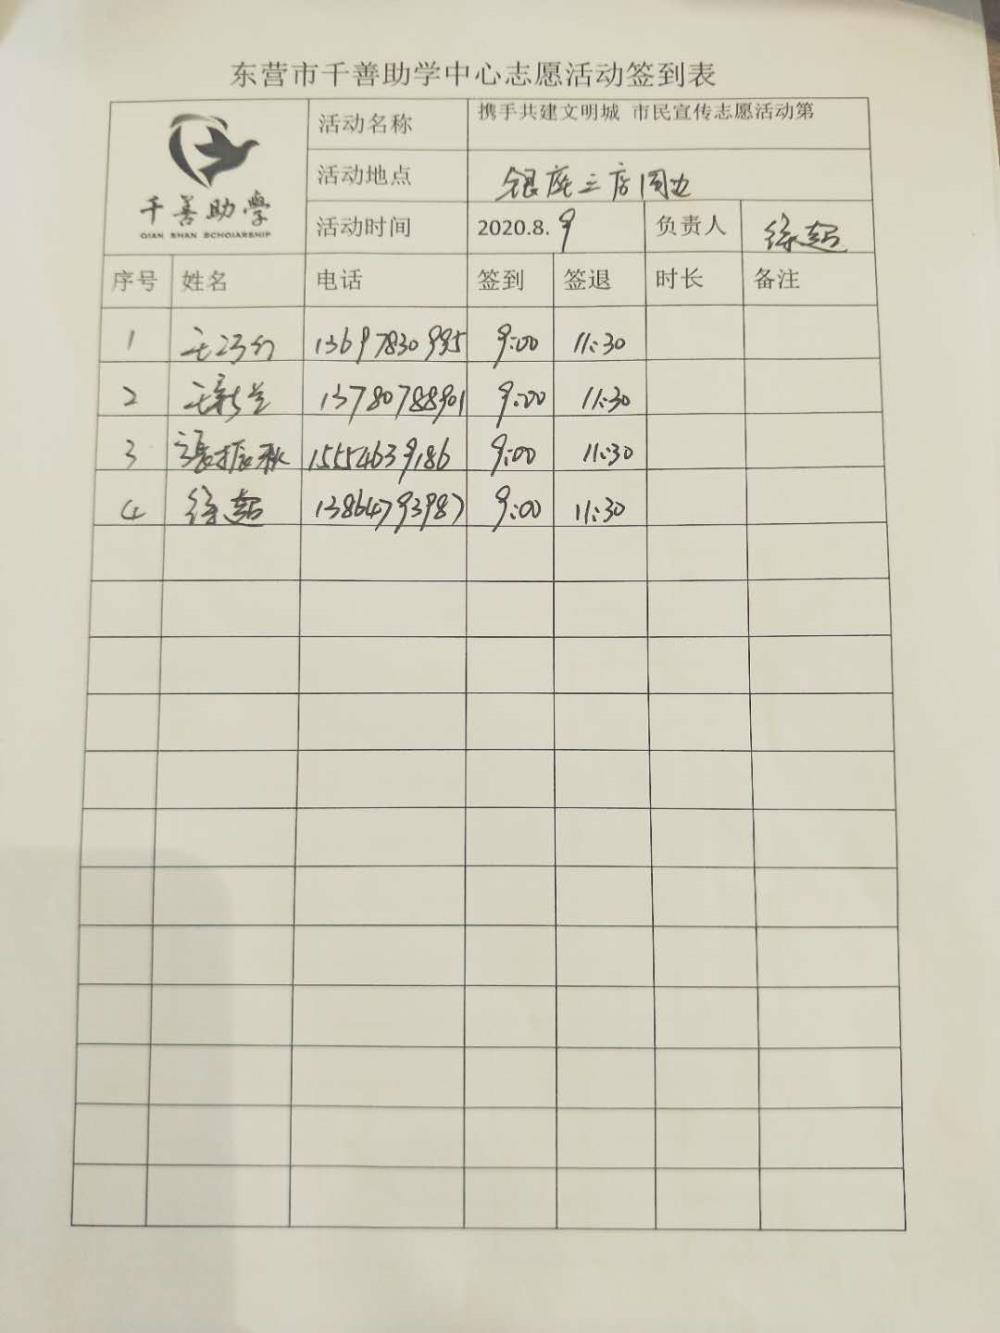 东营市千善助学中心志愿活动签到表
千善助学
QIAN SHAN SCHOIARSHIP
活动名称 携手共建文明城 市民宣传志愿活动第
活动地点 银座三店周边
活动时间 2020.8.9 负责人 徐超
序号 姓名 电话 签到 签退 时长 备注
1 13697830995 9:00 11:30
2 13780788901 9:00 11:30
3 張振秋 15554639186 9:00 11:30
4 徐超 13864793987 9:00 11:30